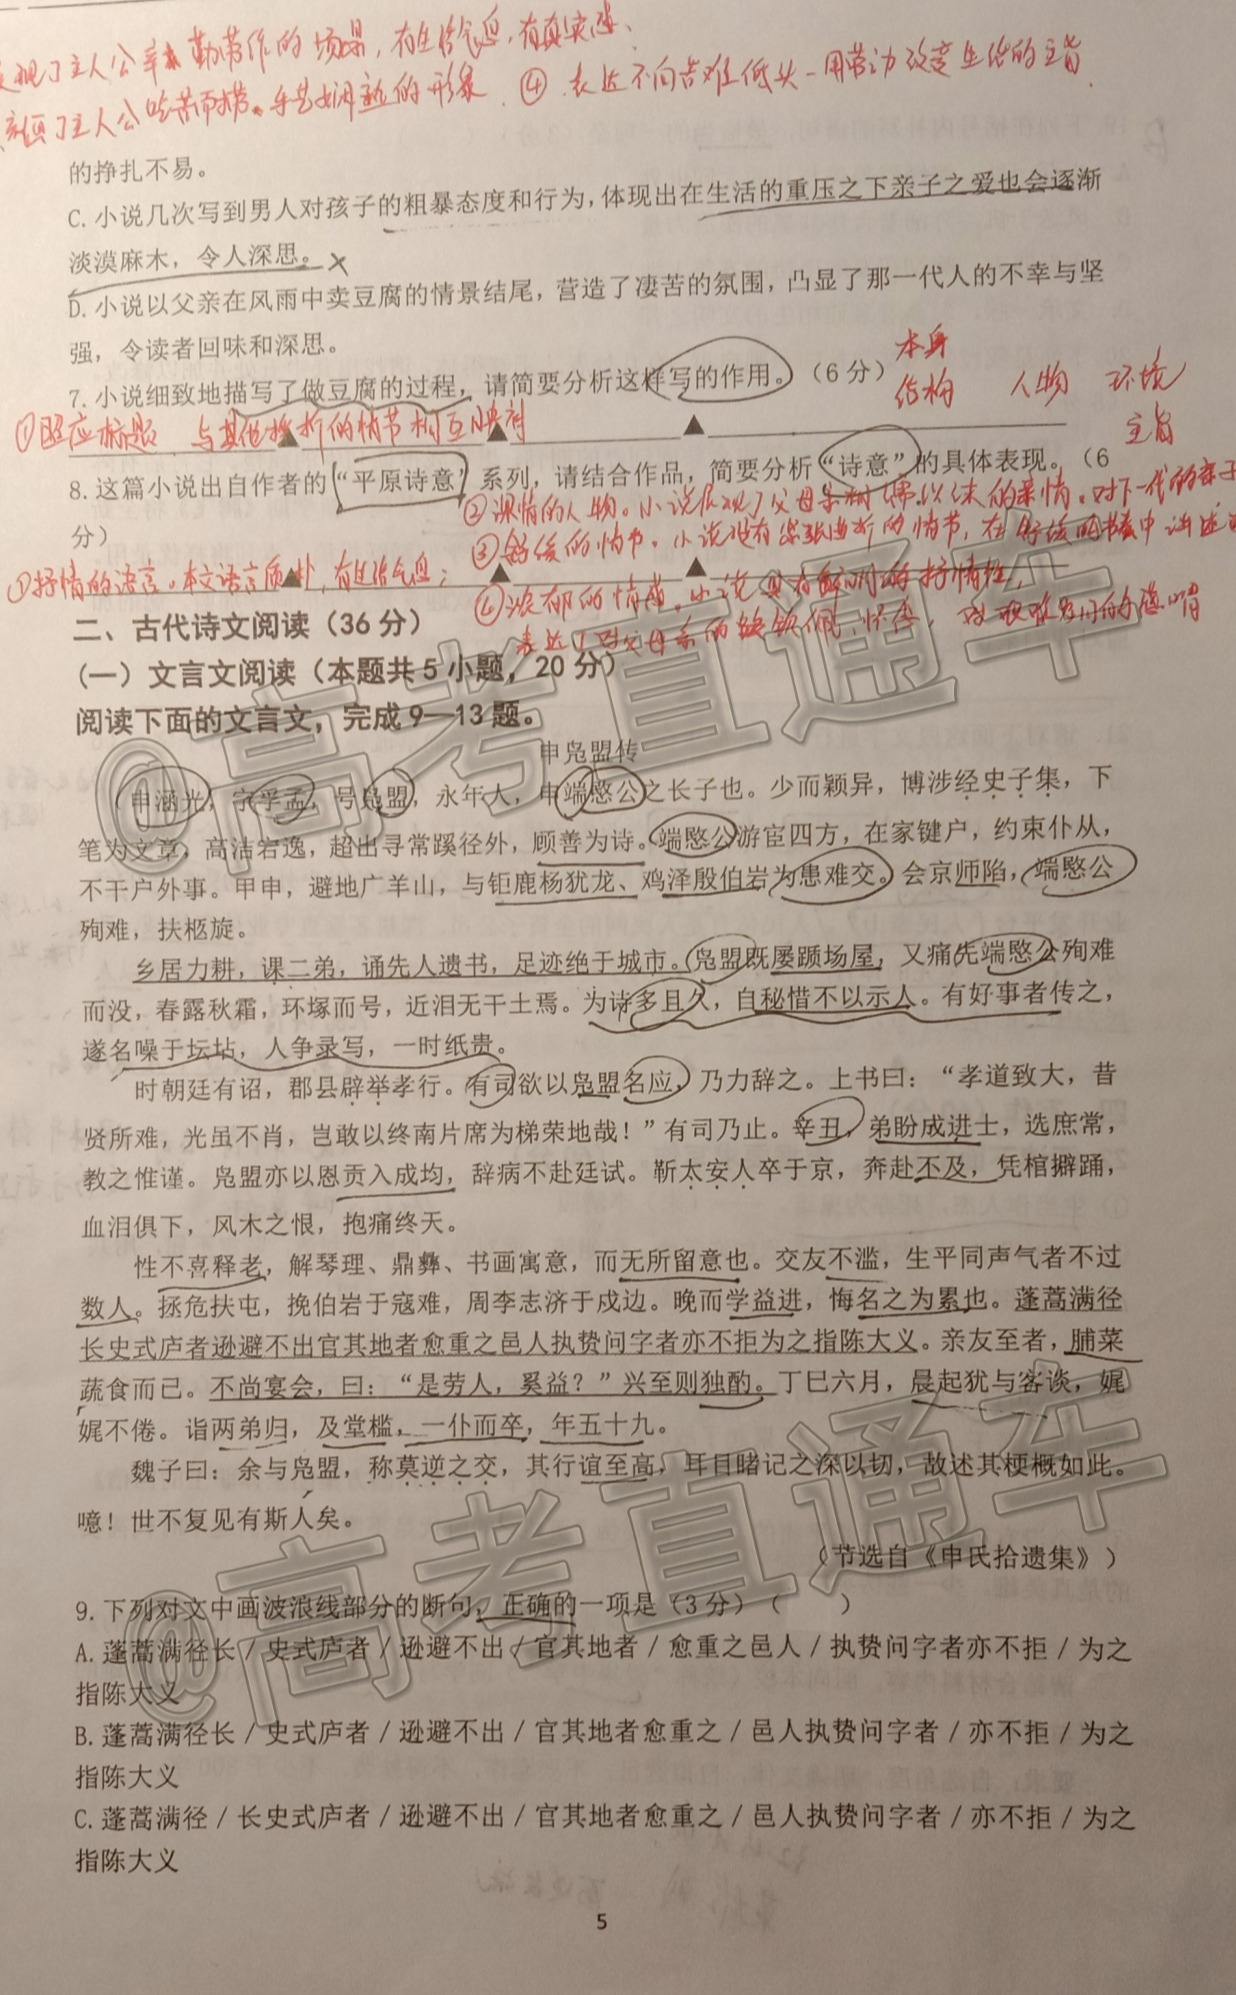 现了主人公辛勤劳作的场景，有生活气息，有真实感、
了主人公吃苦而博、手艺娴熟的形象．④．表达不向苦难低头－用劳动改变生活的主旨．
的挣扎不易。
C.小说几次写到男人对孩子的粗暴态度和行为，体现出在生活的重压之下亲子之爱也会逐渐
淡漠麻木，令人深思。
D.小说以父亲在风雨中卖豆腐的情景结尾，营造了凄苦的氛围，凸显了那一代人的不幸与坚
强，令读者回味和深思。
本身
7.小说细致地描写了做豆腐的过程，请简要分析这样写的作用。（6分）
结构 人物 环境
主旨
①照应标题 与其他挫折的情节相互映衬
8.这篇小说出自作者的“平原诗意”系列，请结合作品，简要分析“诗意”的具体表现。（6
分）
②深情的人物。小说展现了父母亲相濡以沫的亲情。对下一代的亲子
③舒缓的情节。小说没有紧张曲折的情节，在舒缓的节奏中讲述
①抒情的语言。本文语言质朴，有生活气息；
④浓郁的情感。小说具有鲜明的抒情性，
表达了对父母亲的钦佩、怀念，
二、古代诗文阅读（36分）
（一）文言文阅读（本题共5小题，20分）
阅读下面的文言文，完成9—13题。
申凫盟传
申涵光，字孚孟，号凫盟，永年人，申端愍公之长子也。少而颖异，博涉经史子集，下
笔为文章，高洁宕逸，超出寻常蹊径外，顾善为诗。端愍公游宦四方，在家键户，约束仆从，
不干户外事。甲申，避地广羊山，与钜鹿杨犹龙、鸡泽殷伯岩为患难交。会京师陷，端愍公
殉难，扶柩旋。
乡居力耕，课二弟，诵先人遗书，足迹绝于城市。凫盟既屡踬场屋，又痛先端愍公殉难
而没，春露秋霜，环塚而号，近泪无干土焉。为诗多且久，自秘惜不以示人。有好事者传之，
遂名噪于坛坫，人争录写，一时纸贵。
时朝廷有诏，郡县辟举孝行。有司欲以凫盟名应，乃力辞之。上书曰：“孝道致大，昔
贤所难，光虽不肖，岂敢以终南片席为梯荣地哉！”有司乃止。辛丑，弟盼成进士，选庶常，
教之惟谨。凫盟亦以恩贡入成均，辞病不赴廷试。靳太安人卒于京，奔赴不及，凭棺擗踊，
血泪俱下，风木之恨，抱痛终天。
性不喜释老，解琴理、鼎彝、书画寓意，而无所留意也。交友不滥，生平同声气者不过
数人。拯危扶屯，挽伯岩于寇难，周李志济于戍边。晚而学益进，悔名之为累也。蓬蒿满径
长史式庐者逊避不出官其地者愈重之邑人执贽问字者亦不拒为之指陈大义。亲友至者，脯菜
蔬食而已。不尚宴会，曰：“是劳人，奚益？”兴至则独酌。丁巳六月，晨起犹与客谈，娓
娓不倦。诣两弟归，及堂槛，一仆而卒，年五十九。
魏子曰：余与凫盟，称莫逆之交，其行谊至高，耳目睹记之深以切，故述其梗概如此。
噫！世不复见有斯人矣。
（节选自《申氏拾遗集》）
9.下列对文中画波浪线部分的断句，正确的一项是（3分）（ ）
A.蓬蒿满径长/史式庐者/逊避不出/官其地者/愈重之邑人/执贽问字者亦不拒/为之
指陈大义
B.蓬蒿满径长/史式庐者/逊避不出/官其地者愈重之/邑人执贽问字者/亦不拒/为之
指陈大义
C.蓬蒿满径/长史式庐者/逊避不出/官其地者愈重之/邑人执贽问字者/亦不拒/为之
指陈大义
5
@高考直通车
@高考直通车